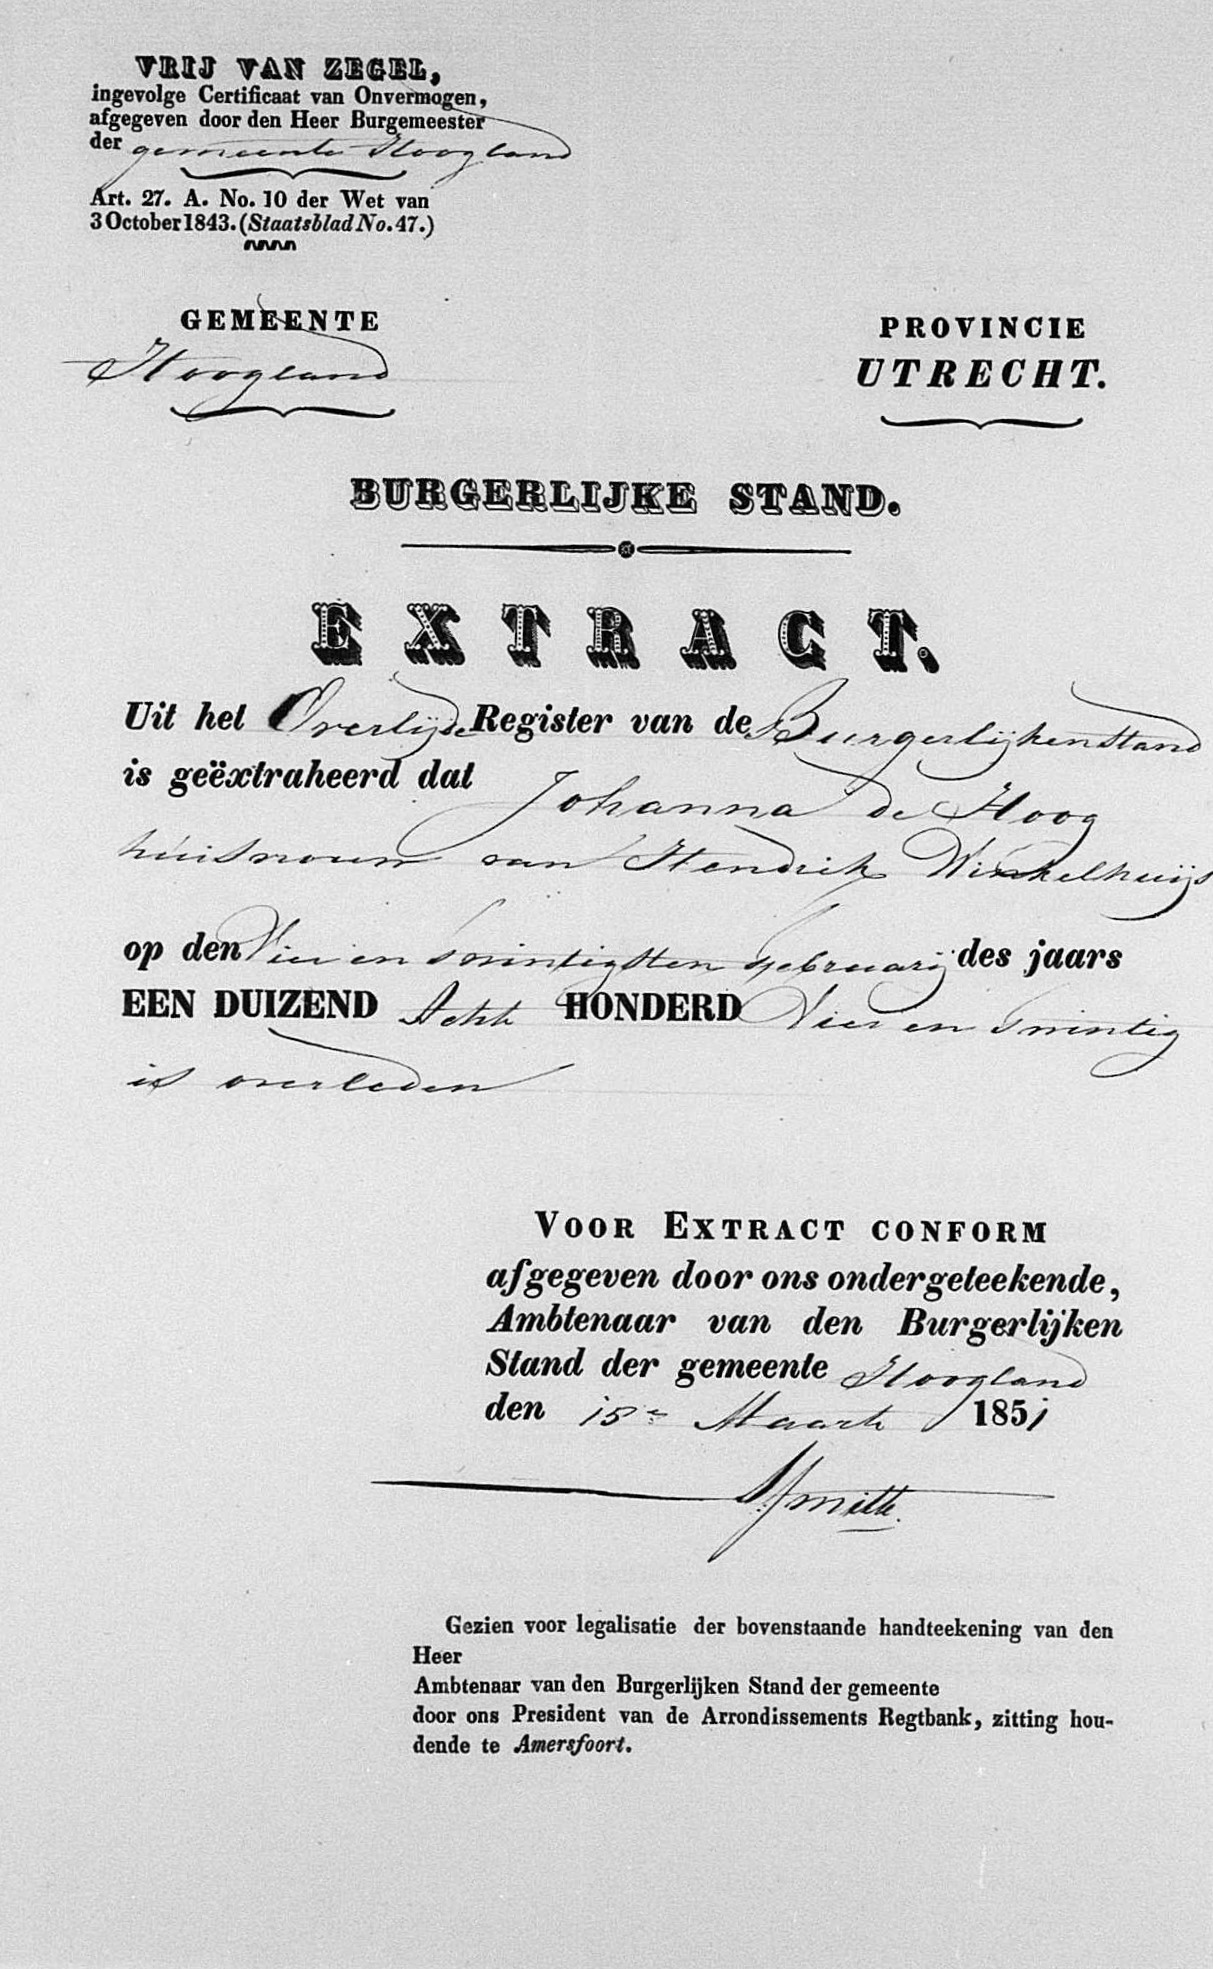 VRIJ VAN ZEGEL,
ingevolge Certificaat van Onvermogen,
afgegeven door den Heer Burgemeester
der gemeente Hoogland
Art. 27. A. No. 10 der Wet van
3 October 1843. (Staatsblad No. 47.)
GEMEENTE
Hoogland
PROVINCIE
UTRECHT.
BURGERLIJKE STAND.
EXTRACT.
Uit het Overlijde Register van de Burgerlijken stand
is geëxtraheerd dat Johanna de Hoog
huisvrouw van Hendrik Winkelhuijs
op den Vier en twintigsten Februarij des jaars
EEN DUIZEND Acht HONDERD Vier en twintig
is overleden
VOOR EXTRACT CONFORM
afgegeven door ons ondergeteekende,
Ambtenaar van den Burgerlijken
Stand der gemeente Hoogland
den 15e Maart 1851
Smith
Gezien voor legalisatie der bovenstaande handteekening van den
Heer
Ambtenaar van den Burgerlijken Stand der gemeente
door ons President van de Arrondissements Regtbank, zitting hou-
dende te Amersfoort.